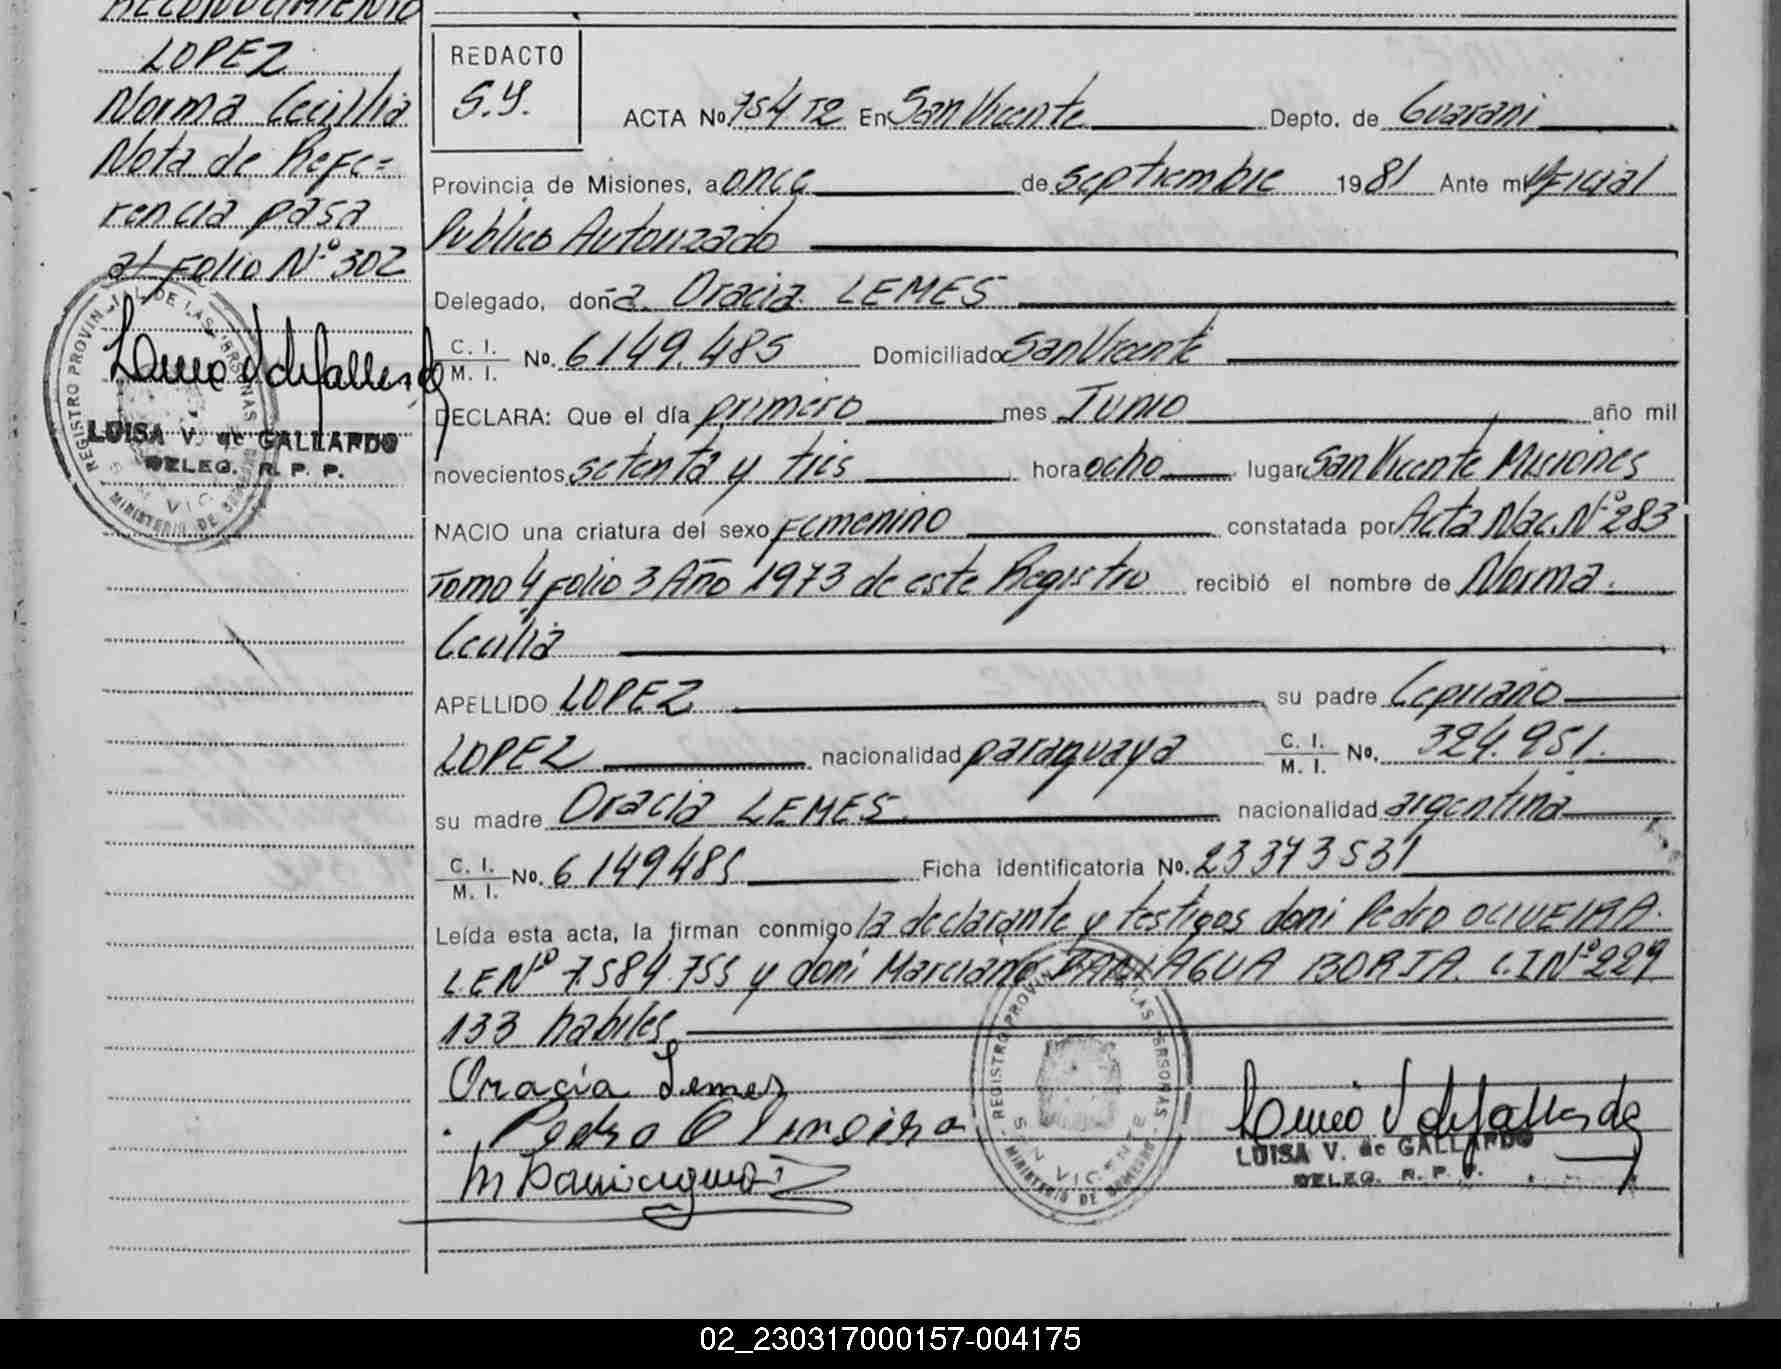 RECONOCIMIENTO
LOPEZ
Norma Cecillia
Nota de Refe=
rencia pasa
al Folio Nº 302
REGISTRO PROVINCIAL DE LAS PERSONAS
MINISTERIO DE GOBIERNO
LUISA V. de GALLARDO
DELEG. R. P. P.
REDACTO
S.Y.
ACTA No. 754 T2 En San Vicente Depto. de Guarani
Provincia de Misiones, a once de septiembre 1981 Ante mi Oficial
Publico Autorizado
Delegado, doña. Oracia. LEMES
C. I. M. I. No. 6149.485 Domiciliado San Vicente
DECLARA: Que el día primero mes Junio año mil
novecientos setenta y tres hora ocho lugar San Vicente Misiones
NACIO una criatura del sexo Femenino constatada por Acta Nac. Nº 283
Tomo 4 Folio 3 Año 1973 de este Registro recibió el nombre de Norma.
Cecilia
APELLIDO LOPEZ su padre Cepriano
LOPEZ nacionalidad paraguaya C. I. M. I. No. 324.951.
su madre Oracia LEMES. nacionalidad argentina
C. I. M. I. No. 6149485 Ficha identificatoria No. 23373531
Leída esta acta, la firman conmigo la declarante y testigos doni Pedro OLIVEIRA.
L.E Nº 7.584.755 y doni Marciano BORJA. C.I Nº 229
133 habiles
Oracia Lemes
Pedro Oliveira
REGISTRO PROVINCIAL DE LAS PERSONAS
SAN VICENTE
MINISTERIO DE GOBIERNO
LUISA V. de GALLARDO
DELEG. R. P. P.
02_230317000157-004175